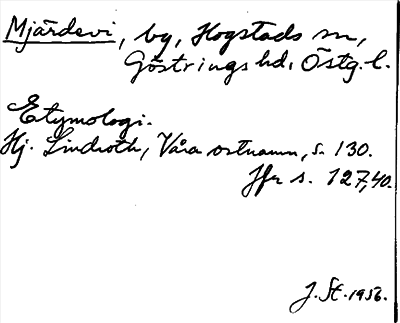 Mjärdevi, by, Hogstads sn,
Göstrings hd, Östg. l.
Etymologi.
Hj. Lindroth, Våra ortnamn, s. 130.
Jfr s. 127, 40.
J. St. 1956.